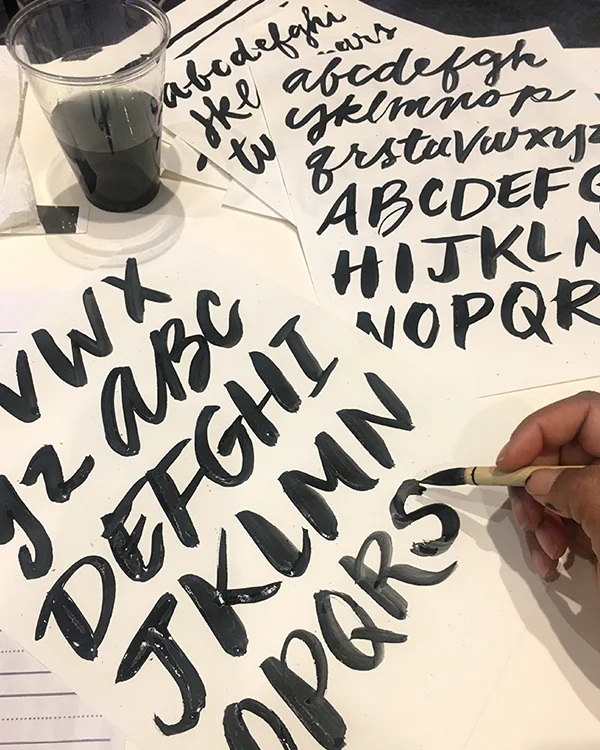 abcdefghi
jkl
tu
abcdefgh
ijklmnop
qrstuvwxyz
ABCDEFG
HIJKL
NOPQR
VWX
yz ABC
DEFGHI
JKLMN
OPQRS